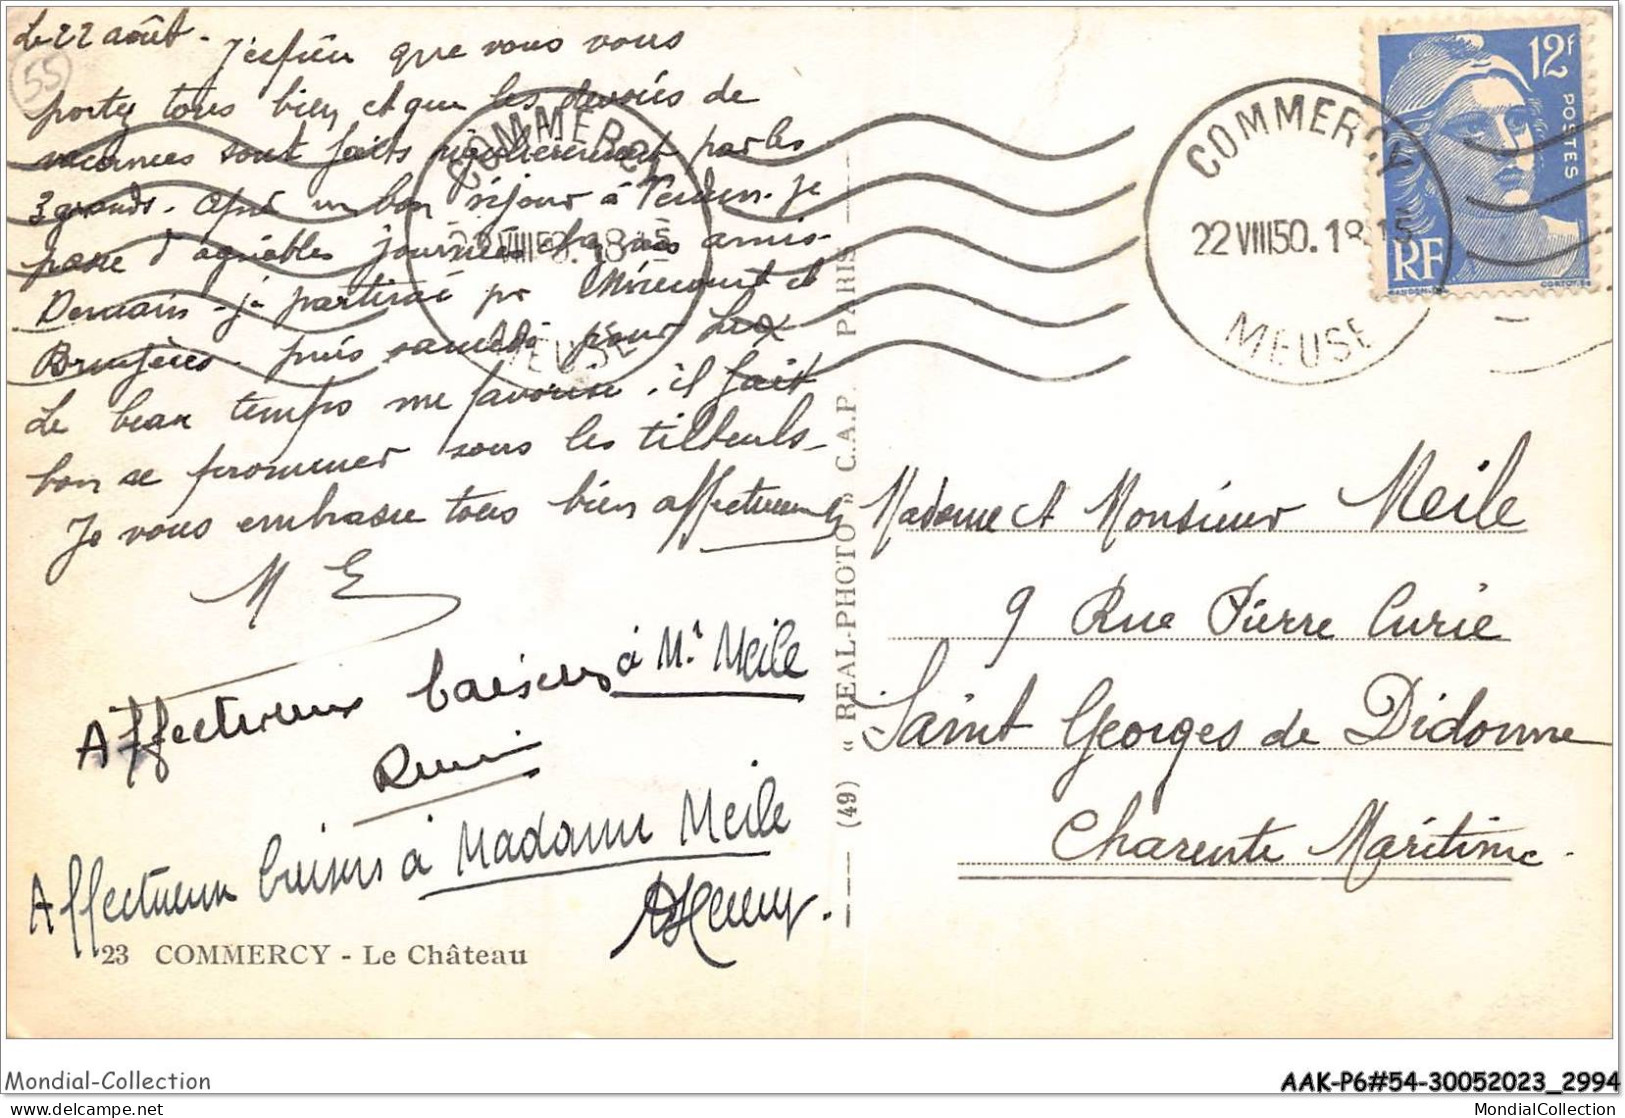 Le 22 août -
55
J'espère que vous vous
portez tous bien et que les devoirs de
vacances sont faits régulièrement par les
3 grands. Après un bon séjour à Verdun. Je
passe d'agréables journées chez mes amis -
Demain - je partirai pr Mirecourt et
Bruyères puis samedi pour
Le beau temps me favorise. il fait
bon se promener sous les tilleuls -
Je vous embrasse tous bien affectueus
M E
Affectueux baisers à Mr Meile
Affectueux baisers à Madame Meile
23 COMMERCY - Le Château
(49) « REAL-PHOTO » C.A.P. PARIS
COMMERCY
22 VIII 50. 18 15
MEUSE
COMMERCY
22 VIII 50. 18 15
MEUSE
12f
POSTES
RF
GANDON
CORTOT
Madame et Monsieur Meile
9 Rue Pierre Curie
Saint Georges de Didonne
Charente Maritime.
Mondial-Collection
AAK-P6#54-30052023_2994
delcampe.net
MondialCollection